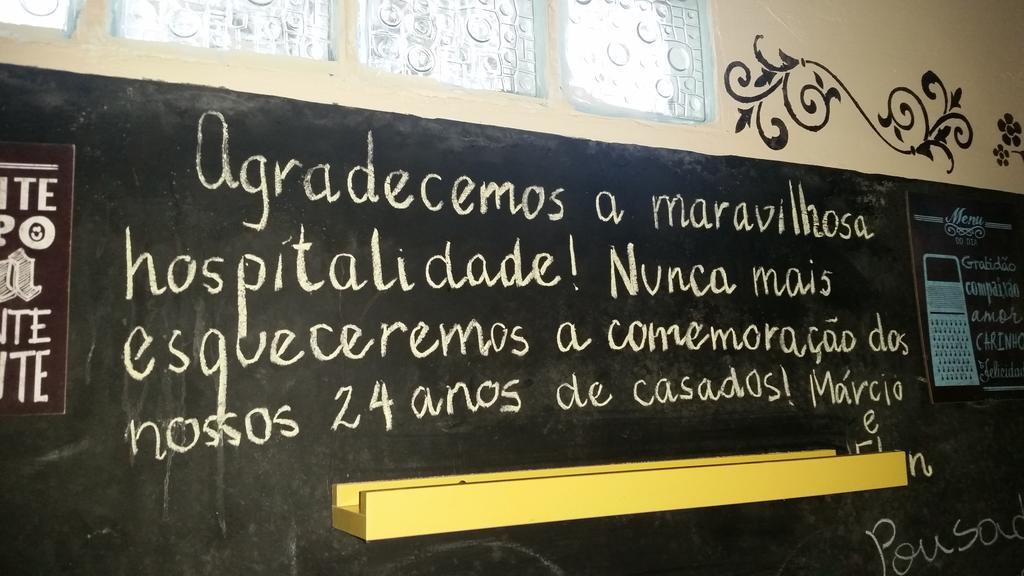 Agradecemos a maravilhosa
hospitalidade! Nunca mais
esqueceremos a comemoração dos
nossos 24 anos de casados! Márcio
e
Menu
DO DIA
Gratidão
compaixão
amor
CARINHO
Felicidad
ITE
PO
a
NTE
NTE
Pousad